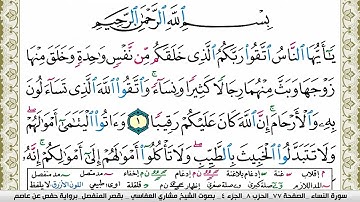 بِسْمِ ٱللَّهِ ٱلرَّحْمَٰنِ ٱلرَّحِيمِ
يَٰٓأَيُّهَا ٱلنَّاسُ ٱتَّقُوا۟ رَبَّكُمُ ٱلَّذِى خَلَقَكُم مِّن نَّفْسٍ وَٰحِدَةٍ وَخَلَقَ مِنْهَا
زَوْجَهَا وَبَثَّ مِنْهُمَا رِجَالًا كَثِيرًا وَنِسَآءً ۚ وَٱتَّقُوا۟ ٱللَّهَ ٱلَّذِى تَسَآءَلُونَ
بِهِۦ وَٱلْأَرْحَامَ ۚ إِنَّ ٱللَّهَ كَانَ عَلَيْكُمْ رَقِيبًا ١ وَءَاتُوا۟ ٱلْيَتَٰمَىٰٓ أَمْوَٰلَهُمْ ۖ
وَلَا تَتَبَدَّلُوا۟ ٱلْخَبِيثَ بِٱلطَّيِّبِ ۖ وَلَا تَأْكُلُوٓا۟ أَمْوَٰلَهُمْ إِلَىٰٓ أَمْوَٰلِكُمْ ۚ إِنَّهُۥ
سورة النساء . الصفحة ٧٧ الحزب ٨ . الجزء ٤ . بصوت الشيخ مشاري العفاسي . بقصر المنفصل . برواية حفص عن عاصم